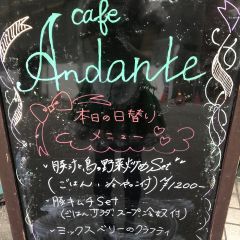 cafe
Andante
本日の日替り
メニュー
豚汁と鳥の野菜炒めSet
(ごはん 冷やっこ付) ¥1200-
豚キムチSet
(ごはん サラダ スープ 冷奴付)
ミックスベリーのクラフティ